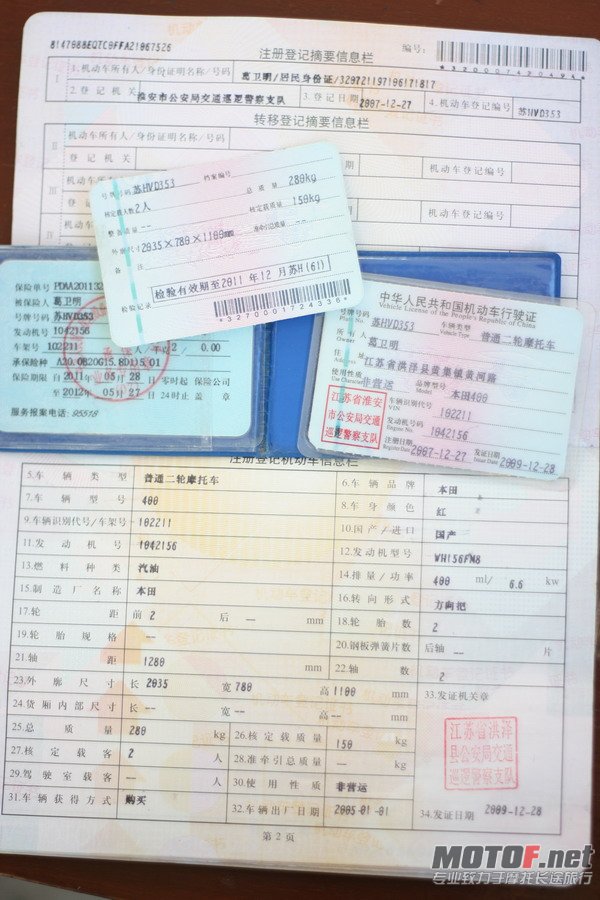 8147088EQTC0FFA21067526
注册登记摘要信息栏
编号:
*320004204944*
I
1.机动车所有人/身份证明名称/号码
葛卫明/居民身份证/320721197106171817
2.登记机关
淮安市公安局交通巡逻警察支队
3.登记日期
2007-12-27
4.机动车登记编号
苏HVD353
转移登记摘要信息栏
II
机动车所有人/身份证明名称/号码
登记机关
登记日期
机动车登记编号
III
号牌号码 苏HVD353
档案编号
核定载人数 2人
总质量 280kg
整备质量 --
核定载质量 150kg
外廓尺寸 2035×780×1100mm
准牵引总质量 --
备注
检验有效期至2011年12月苏H(61)
检验记录
*3270001724336*
保险单号 PDAA201132
被保险人 葛卫明
号牌号码 苏HVD353
发动机号 1042156
车架号 102211
2/ 0.00
承保险种
保险期限 自 2011 年 05 月 28 日 零时起 保险公司
至 2012 年 05 月 27 日 24时止 盖章
服务报案电话: 95518
中华人民共和国机动车行驶证
Vehicle License of the People's Republic of China
号牌号码 Plate No. 苏HVD353
车辆类型 Vehicle Type 普通二轮摩托车
所有人 Owner 葛卫明
住址 Address 江苏省洪泽县黄集镇黄河路
使用性质 Use Character 非营运
品牌型号 Model 本田400
江苏省淮安
市公安局交通
巡逻警察支队
车辆识别代号 VIN 102211
发动机号码 Engine No. 1042156
注册日期 Register Date 2007-12-27
发证日期 Issue Date 2009-12-28
注册登记机动车信息栏
5.车辆类型 普通二轮摩托车
6.车辆品牌 本田
7.车辆型号 400
8.车身颜色 红
9.车辆识别代号/车架号 102211
10.国产/进口 国产
11.发动机号 1042156
12.发动机型号 WH156FM8
13.燃料种类 汽油
14.排量/功率 400 ml/ 6.6 kw
15.制造厂名称 本田
16.转向形式 方向把
17.轮距 前 2 后 -- mm
18.轮胎数 2
19.轮胎规格 --
20.钢板弹簧片数 后轴 -- 片
21.轴距 1280 mm
22.轴数 2
23.外廓尺寸 长 2035 宽 780 高 1100 mm
33.发证机关章
24.货厢内部尺寸 长 -- 宽 -- 高 -- mm
25.总质量 280 kg
26.核定载质量 150 kg
27.核定载客 2 人
28.准牵引总质量 -- kg
29.驾驶室载客 -- 人
30.使用性质 非营运
江苏省洪泽
县公安局交通
巡逻警察支队
31.车辆获得方式 购买
32.车辆出厂日期 2005-01-01
34.发证日期 2009-12-28
第 2 页
MOTOF.net
专业致力于摩托长途旅行